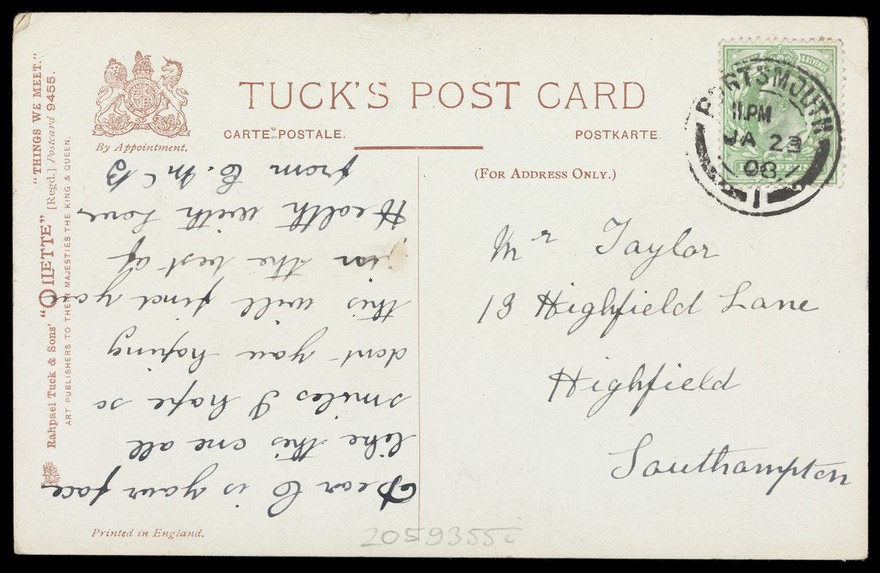 TUCK'S POST CARD
CARTE POSTALE.
POSTKARTE
(FOR ADDRESS ONLY.)
By Appointment.
"THINGS WE MEET."
Rahpael Tuck & Sons' "OILETTE" [Regd.] Postcard 9455.
ART PUBLISHERS TO THEIR MAJESTIES THE KING & QUEEN.
Printed in England.
PORTSMOUTH
11.PM
JA 23
08
1
Mr Taylor
13 Highfield Lane
Highfield
Southampton
Dear C is your face
like this one all
smiles I hope so
dont you hoping
this will find you
in the best of
Health with Love
from C. Mc B
2059355i